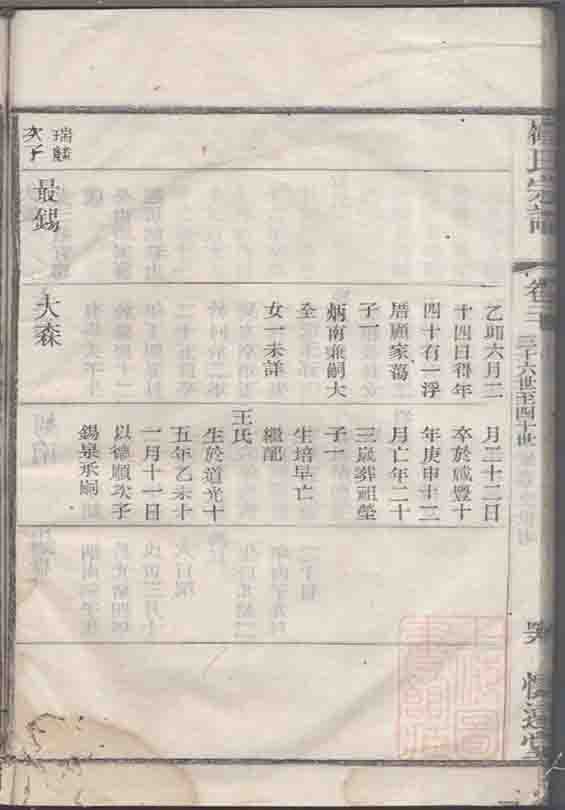 氏宗譜
卷三
三十六世至四十世
乙卯六月二
十四日得年
四十有一浮
厝顧家蕩
子一
炳南兼嗣大
全
女一未詳
大森
最錫
瑞麟
次子
月二十二日
卒於咸豐十
年庚申十二
月亡年二十
三歲葬祖塋
子一
生培早亡
繼配
王氏
生於道光十
五年乙未十
一月十一日
以德順次子
錫泉承嗣